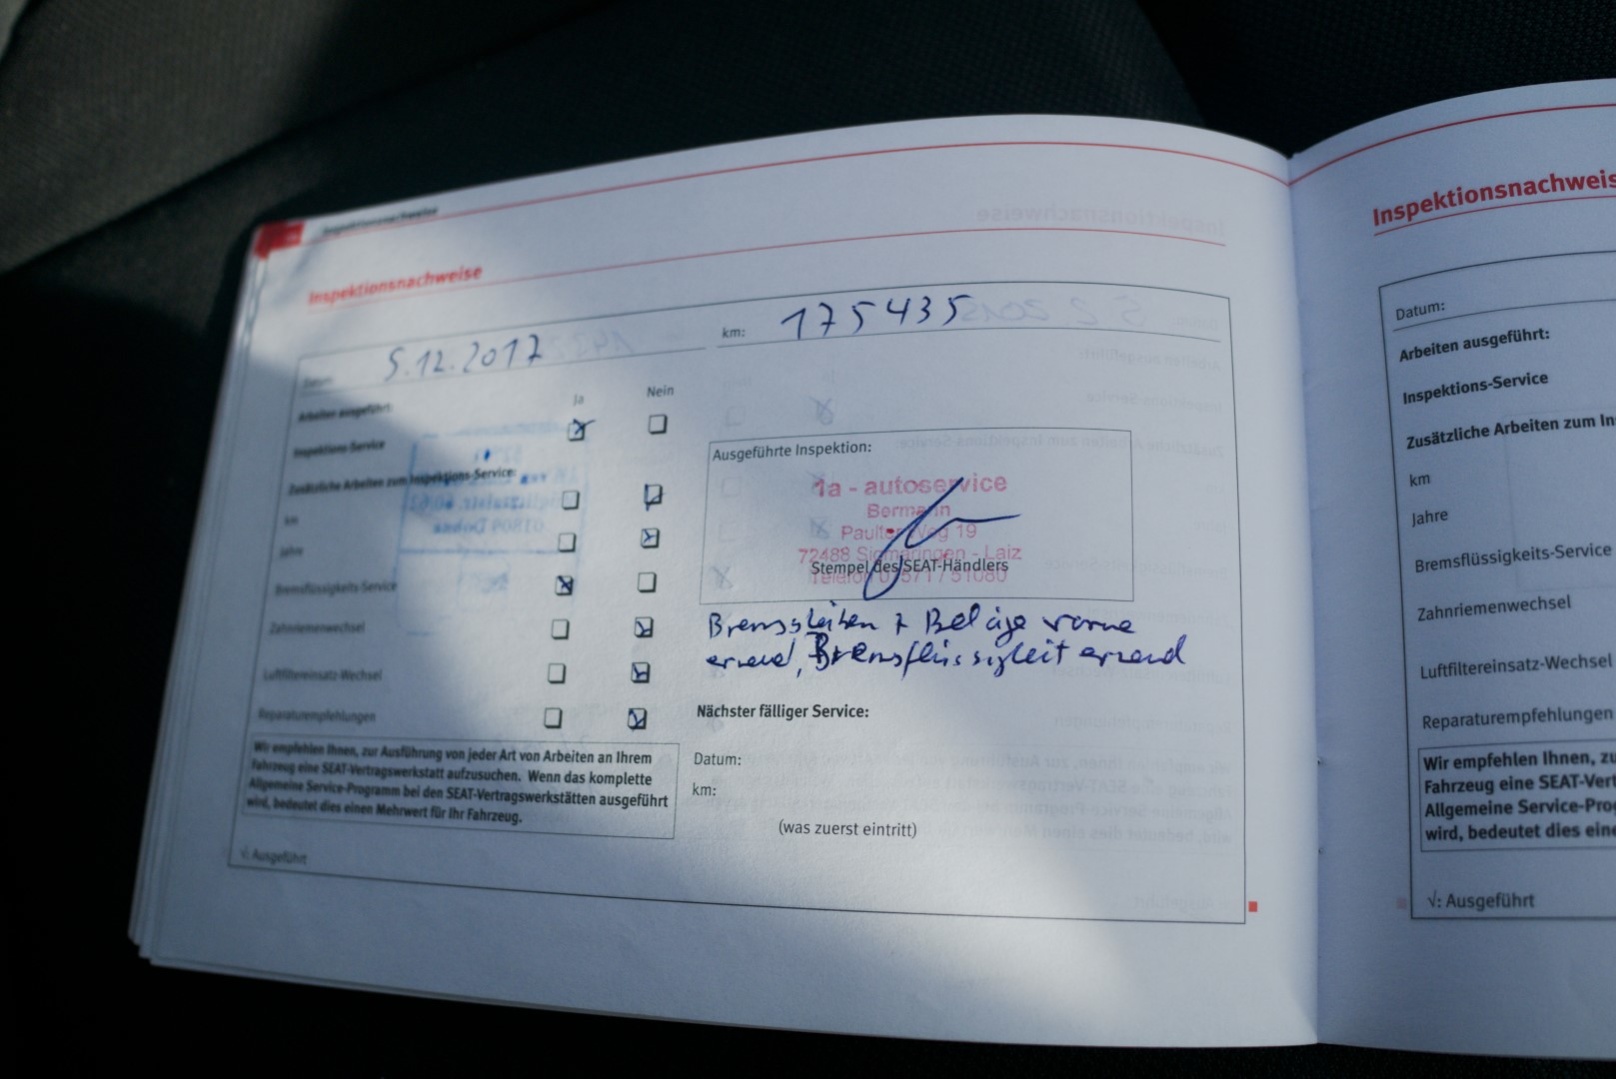 Inspektionsnachweise
Inspektionsnachweise
Datum: 5.12.2017 km: 175435
Arbeiten ausgeführt: Ja Nein
Inspektions-Service
Zusätzliche Arbeiten zum Inspektions-Service:
km
Jahre
Bremsflüssigkeits-Service
Zahnriemenwechsel
Luftfiltereinsatz-Wechsel
Reparaturempfehlungen
Wir empfehlen Ihnen, zur Ausführung von jeder Art von Arbeiten an Ihrem
Fahrzeug eine SEAT-Vertragswerkstatt aufzusuchen. Wenn das komplette
Allgemeine Service-Programm bei den SEAT-Vertragswerkstätten ausgeführt
wird, bedeutet dies einen Mehrwert für Ihr Fahrzeug.
√: Ausgeführt
Ausgeführte Inspektion:
1a - autoservice
Bermann
Paulter Weg 19
72488 Sigmaringen - Laiz
Stempel des SEAT-Händlers
Telefon 07571 / 51080
Bremsscheiben + Beläge vorne
erneud, Bremsflüssigkeit erneud
Nächster fälliger Service:
Datum:
km:
(was zuerst eintritt)
Inspektionsnachweis
Datum:
Arbeiten ausgeführt:
Inspektions-Service
Zusätzliche Arbeiten zum In
km
Jahre
Bremsflüssigkeits-Service
Zahnriemenwechsel
Luftfiltereinsatz-Wechsel
Reparaturempfehlungen
Wir empfehlen Ihnen, zu
Fahrzeug eine SEAT-Vert
Allgemeine Service-Prog
wird, bedeutet dies eine
√: Ausgeführt